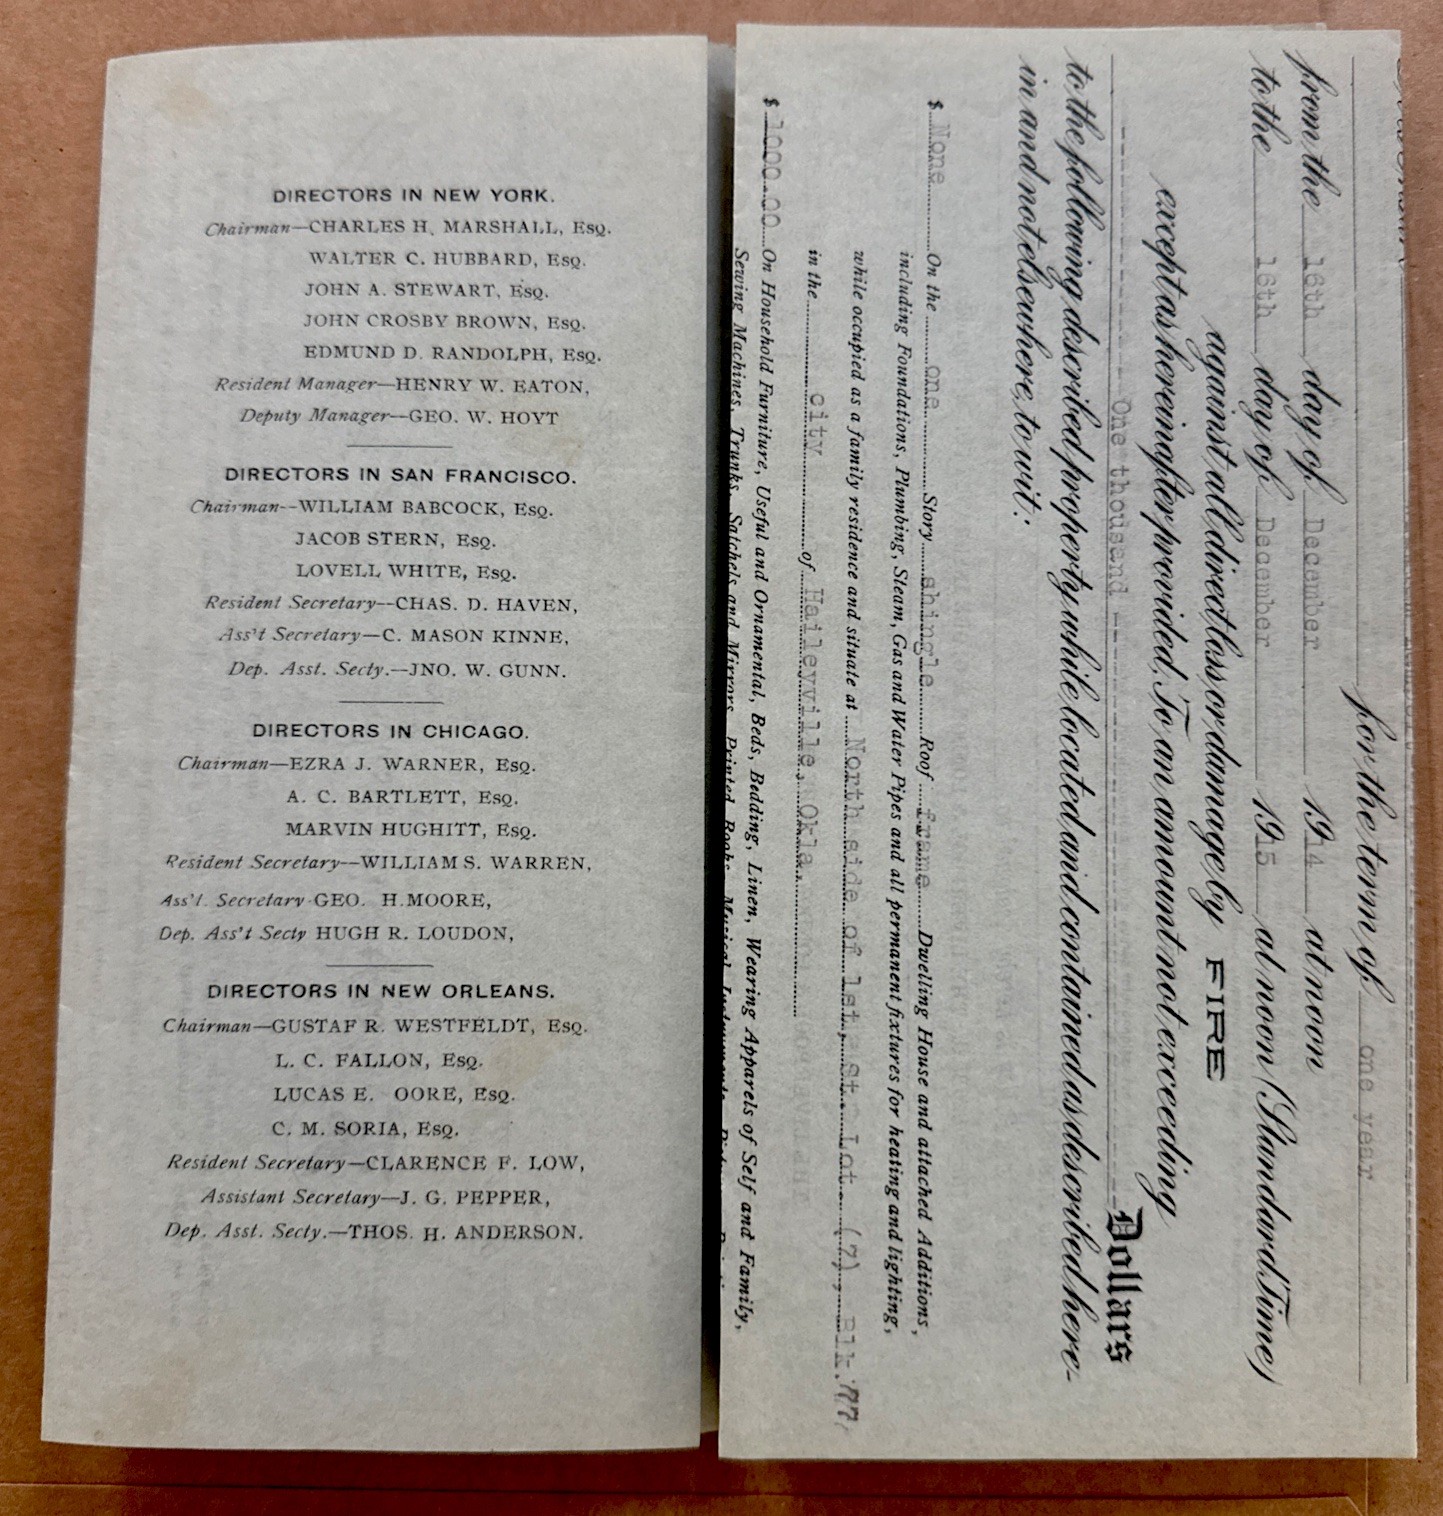 DIRECTORS IN NEW YORK.
Chairman—CHARLES H. MARSHALL, Esq.
WALTER C. HUBBARD, Esq.
JOHN A. STEWART, Esq.
JOHN CROSBY BROWN, Esq.
EDMUND D. RANDOLPH, Esq.
Resident Manager—HENRY W. EATON,
Deputy Manager—GEO. W. HOYT
DIRECTORS IN SAN FRANCISCO.
Chairman--WILLIAM BABCOCK, Esq.
JACOB STERN, Esq.
LOVELL WHITE, Esq.
Resident Secretary--CHAS. D. HAVEN,
Ass't Secretary—C. MASON KINNE,
Dep. Asst. Secty.—JNO. W. GUNN.
DIRECTORS IN CHICAGO.
Chairman—EZRA J. WARNER, Esq.
A. C. BARTLETT, Esq.
MARVIN HUGHITT, Esq.
Resident Secretary—WILLIAM S. WARREN,
Ass't. Secretary-GEO. H.MOORE,
Dep. Ass't Secty HUGH R. LOUDON,
DIRECTORS IN NEW ORLEANS.
Chairman—GUSTAF R. WESTFELDT, Esq.
L. C. FALLON, Esq.
LUCAS E. OORE, Esq.
C. M. SORIA, Esq.
Resident Secretary—CLARENCE F. LOW,
Assistant Secretary—J. G. PEPPER,
Dep. Asst. Secty.—THOS. H. ANDERSON.
for the term of one year
from the 16th day of December 1914 at noon
to the 16th day of December 1915 at noon (Standard Time)
against all direct loss or damage by FIRE
except as hereinafter provided, To an amount not exceeding
One thousend Dollars
to the following described property while located and contained as described here-
in and not elsewhere, to wit:
$ None On the one Story shingle Roof frame Dwelling House and attached Additions,
including Foundations, Plumbing, Steam, Gas and Water Pipes and all permanent fixtures for heating and lighting,
while occupied as a family residence and situate at North side of 1st, St. Lot. (7), Blk.77,
in the city of Haileyville, Okla.
$ 1000.00 On Household Furniture, Useful and Ornamental, Beds, Bedding, Linen, Wearing Apparels of Self and Family,
Sewing Machines, Trunks, Satchels and Mirrors, Printed Books, Musical